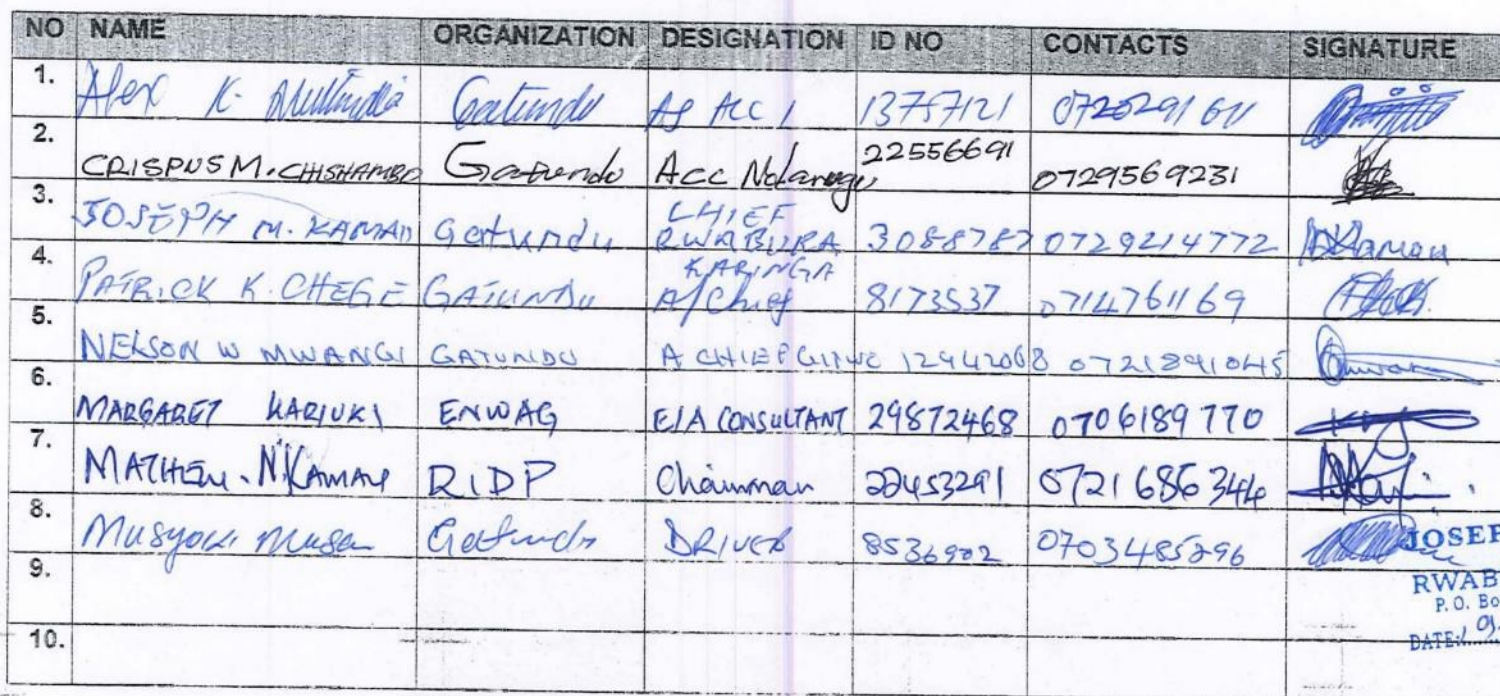 NO NAME ORGANIZATION DESIGNATION ID NO CONTACTS SIGNATURE
1. Alex K. Gatundu Ag ACC 1 13757121
2. CRISPUS M. CHISHAMBO Gatundu Acc Ndarugu 22556691 0729569231
3. JOSEPH M. KAMAU Gatundu CHIEF RWABURA 3088787 0729214772 Kamau
4. PATRICK K. CHEGE GATUNDU KARINGA A/Chief 8173537 0714761169
5. NELSON W MWANGI GATUNDU A CHIEF 12942068 0721891045
6. MARGARET KARIUKI ENWAG EIA CONSULTANT 29872468 0706189770
7. MATHEW. N. KAMAU RIDP Chairman 22453291 0721686344
8. Musyoki Musa Gatundu DRIVER 8536902 0703485296
JOSEP
9.
RWAB
P.O. Bo
10.
DATE: